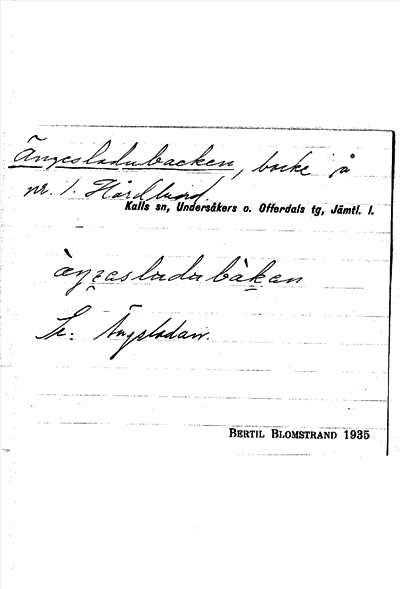 Ängesladubacken, backe å
nr. 1. Hårdlund.
Kalls sn, Undersåkers o. Offerdals tg, Jämtl. l.
Se: Ängsladan.
BERTIL BLOMSTRAND 1935